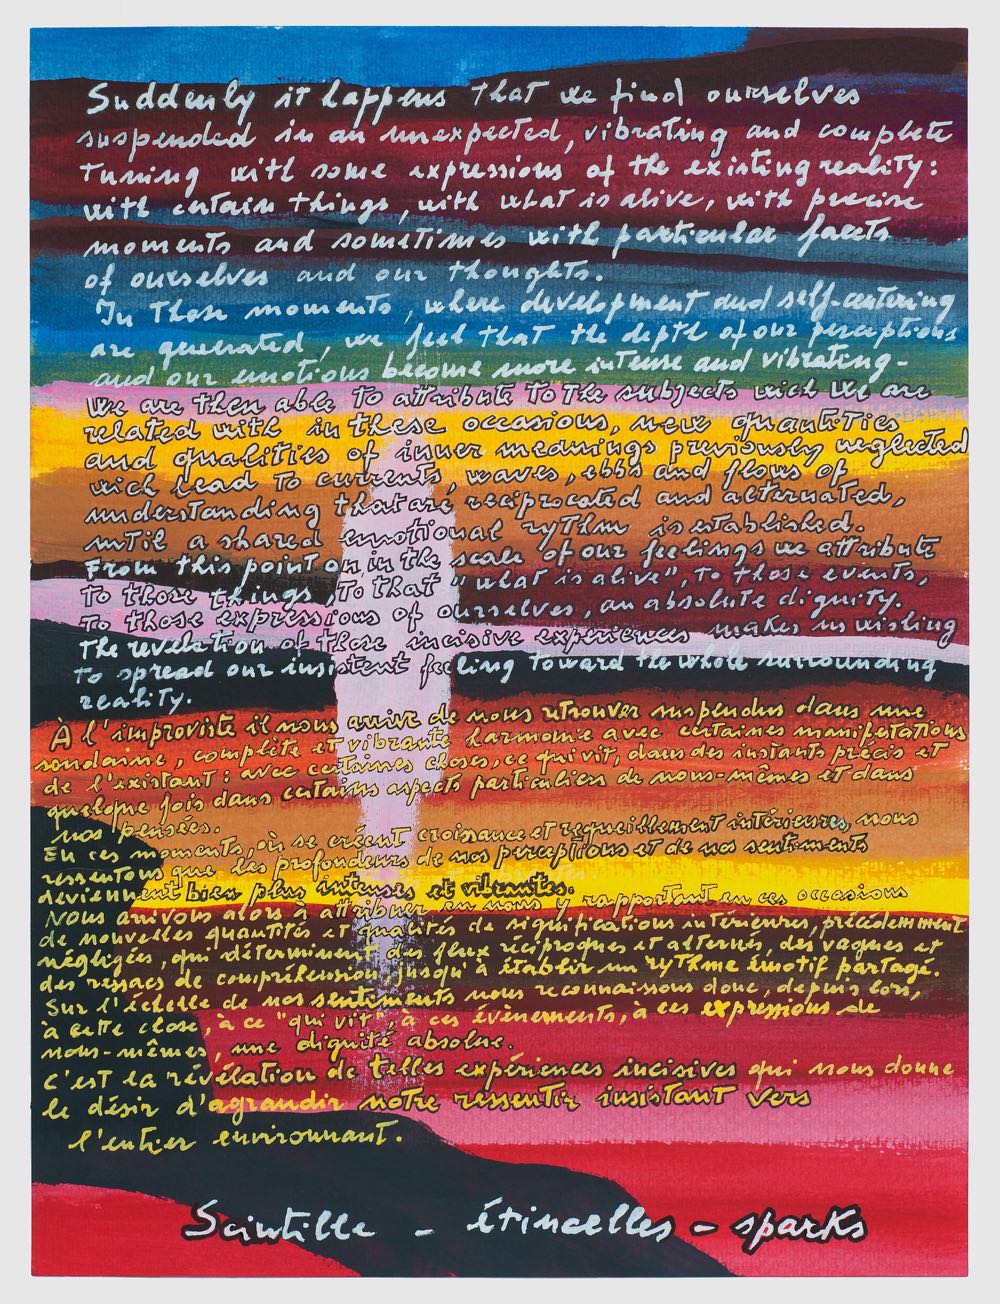 Suddenly it happens that we find ourselves
suspended in an unexpected, vibrating and complete
tuning with some expressions of the existing reality:
with certain things, with what is alive, with precise
moments and sometimes with particular facets
of ourselves and our thoughts.
In those moments, where development and self-centering
are generated, we feel that the depth of our perceptions
and our emotions become more intense and vibrating-
We are then able to attribute to the subjects wich we are
related with in these occasions, new quantities
and qualities of inner meanings previously neglected
wich lead to currents, waves, ebbs and flows of
understanding that are reciprocated and alternated,
until a shared emotional rythm is established.
From this point on in the scale of our feelings we attribute
to those things, to that "what is alive", to those events,
to those expressions of ourselves, an absolute dignity.
The revelation of those incisive experiences makes us wishing
to spread our insistent feeling toward the whole surrounding
reality.
À l'improviste il nous arrive de nous retrouver suspendus dans une
soudaine, complète et vibrante harmonie avec certaines manifestations
de l'existant: avec certaines choses, ce qui vit, dans des instants précis et
quelque fois dans certains aspects particuliers de nous-mêmes et dans
nos pensées.
En ces moments, où se créent croissance et requeillement intérieures, nous
ressentons que les profondeurs de nos perceptions et de nos sentiments
deviennent bien plus intenses et vibrantes.
Nous arrivons alors à attribuer en nous y rapportant en ces occasions
de nouvelles quantités et qualités de significations intérieures, précédemment
négligées, qui déterminent des flux réciproques et alternés, des vagues et
des ressacs de compréhension, jusqu'à établir un rythme émotif partagé.
Sur l'échelle de nos sentiments nous reconnaissons donc, depuis lors,
à cette chose, à ce "qui vit", à ces évènements, à ces expressions de
nous-mêmes, une dignité absolue.
C'est la révélation de telles expériences incisives qui nous donne
le désir d'agrandir notre ressentir insistant vers
l'entier environnant.
Scintille - étincelles - sparks